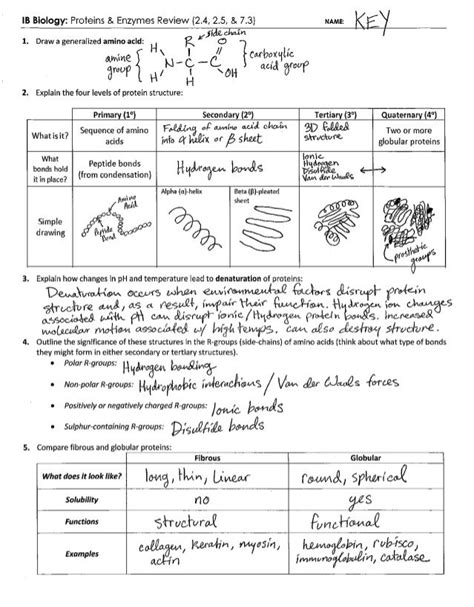 IB Biology: Proteins & Enzymes Review (2.4, 2.5, & 7.3)
NAME: KEY
1. Draw a generalized amino acid:
R ← side chain
amine group { H H N-C-C O OH H } carboxylic acid group
2. Explain the four levels of protein structure:
Primary (1°) Secondary (2°) Tertiary (3°) Quaternary (4°)
What is it?
Sequence of amino acids
Folding of amino acid chain into α helix or β sheet
3D folded structure
Two or more globular proteins
What bonds hold it in place?
Peptide bonds (from condensation)
Hydrogen bonds
Ionic
Hydrogen
Disulfide
Van der Waals
Simple drawing
Amino Acid
Peptide Bond
Alpha (α)-helix
Beta (β)-pleated sheet
prosthetic groups
3. Explain how changes in pH and temperature lead to denaturation of proteins:
Denaturation occurs when environmental factors disrupt protein
structure and, as a result, impair their function. Hydrogen ion changes
associated with pH can disrupt ionic/Hydrogen protein bonds. Increased
molecular motion associated w/ high temps. can also destroy structure.
4. Outline the significance of these structures in the R-groups (side-chains) of amino acids (think about what type of bonds
they might form in either secondary or tertiary structures).
• Polar R-groups: Hydrogen bonding
• Non-polar R-groups: Hydrophobic interactions / Van der Waals forces
• Positively or negatively charged R-groups: Ionic bonds
• Sulphur-containing R-groups: Disulfide bonds
5. Compare fibrous and globular proteins:
Fibrous Globular
What does it look like? long, thin, Linear round, spherical
Solubility no yes
Functions structural functional
Examples
collagen, keratin, myosin,
actin
hemoglobin, rubisco,
immunoglobulin, catalase